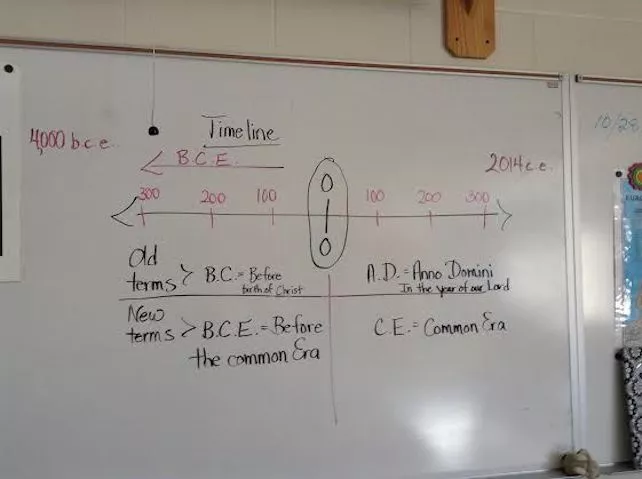 Timeline
4,000 b.c.e.
B.C.E.
2014 c.e.
10/28
300 200 100 0 100 200 300
0
Old terms > B.C. = Before
birth of Christ
A.D. = Anno Domini
In the year of our Lord
New terms > B.C.E. = Before
the common Era
C.E. = Common Era